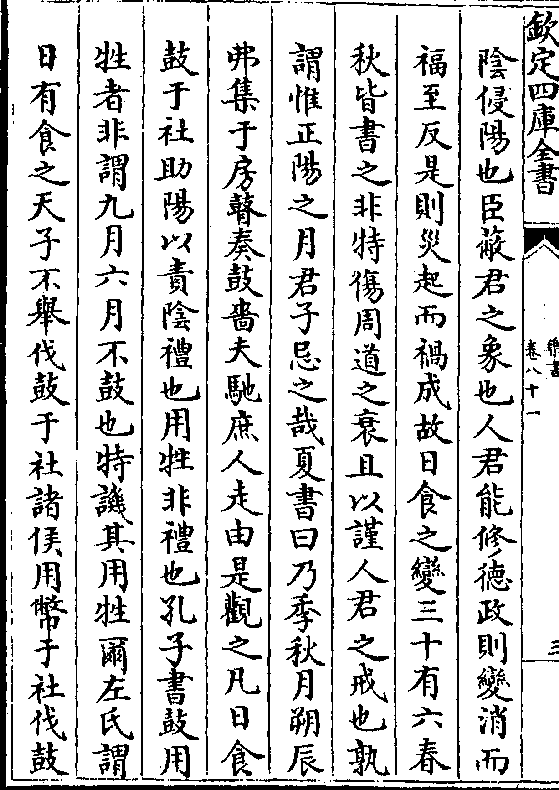 欽定四庫全書
樂書
卷八十一
三
陰侵陽也臣蔽君之象也人君能修德政則變消而
福至反是則災起而禍成故日食之變三十有六春
秋皆書之非特傷周道之衰且以謹人君之戒也孰
謂惟正陽之月君子忌之哉夏書曰乃季秋月朔辰
弗集于房瞽奏鼓嗇夫馳庶人走由是觀之凡日食
鼓于社助陽以責陰禮也用牲非禮也孔子書鼓用
牲者非謂九月六月不鼓也特譏其用牲爾左氏謂
日有食之天子不舉伐鼓于社諸侯用幣于社伐鼓